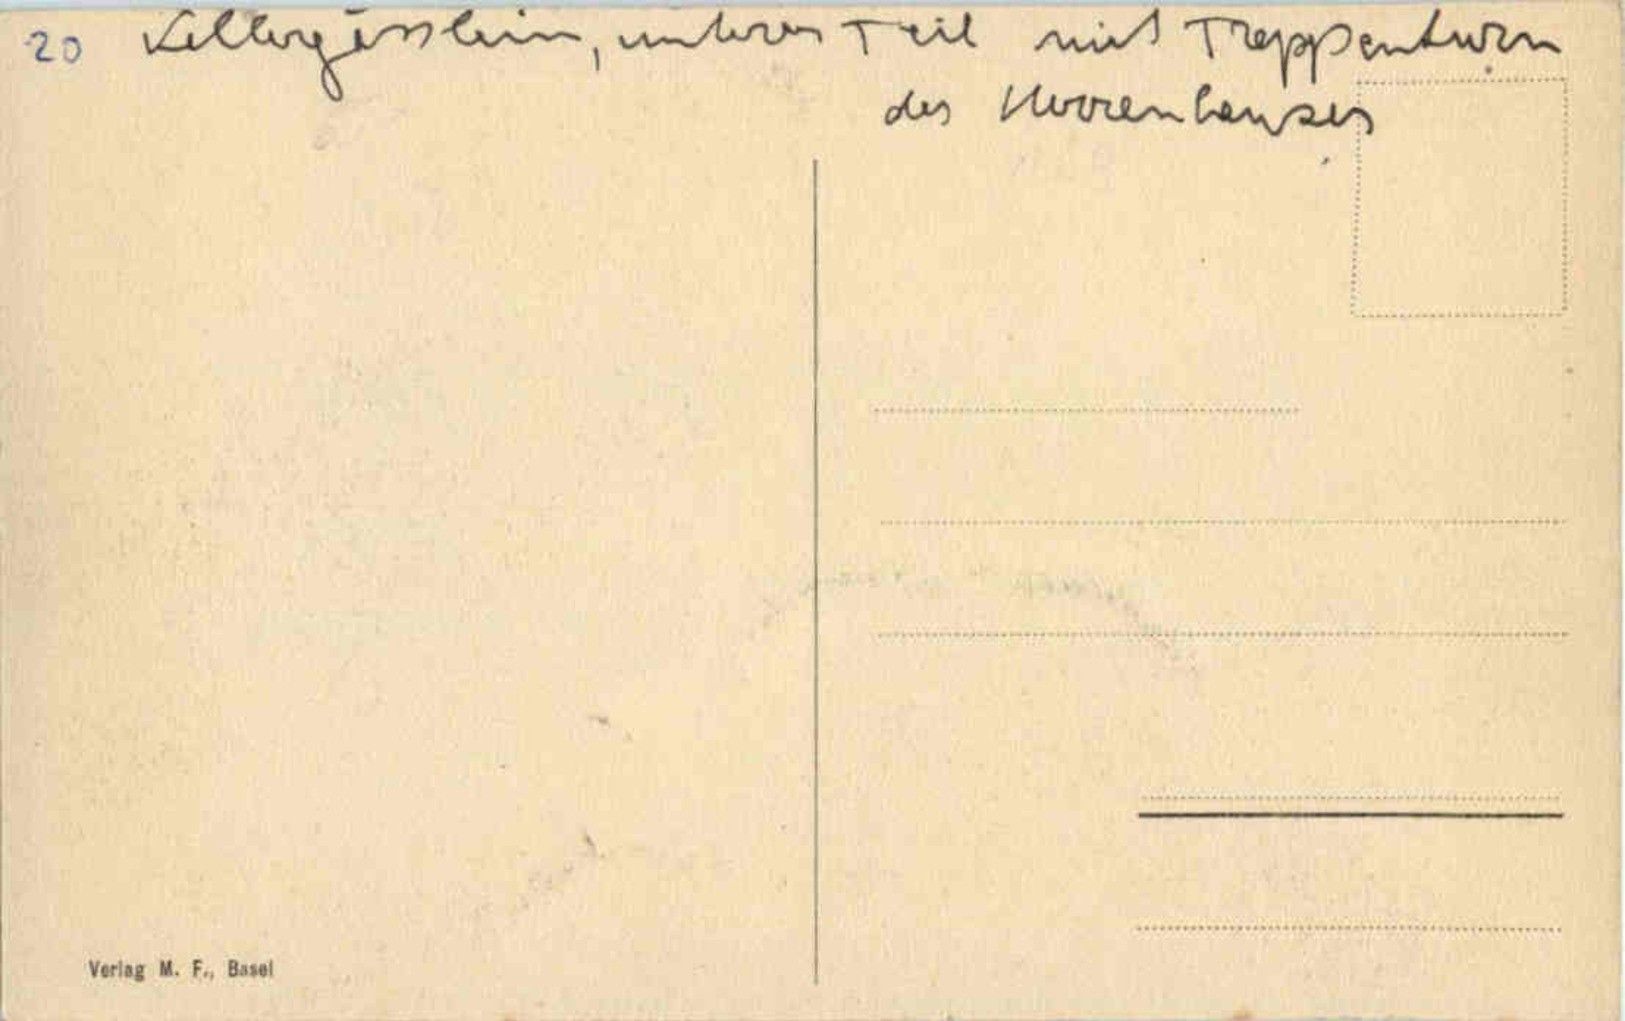 20 Kellergässlein, unterer Teil mit Treppenturm
des
Verlag M. F., Basel